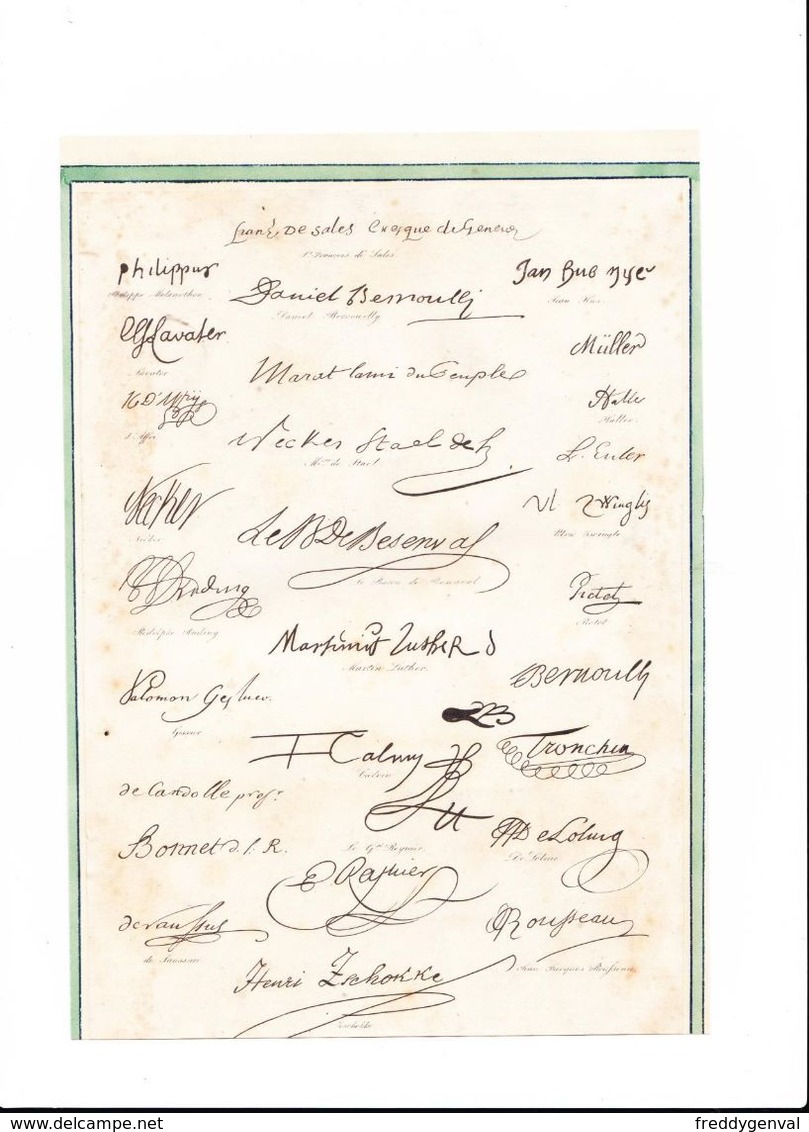 franç De sales Evesque de Geneve
St. François de Sales
Philippus
Philippe Melancthon
Jan Hus
Jean Hus
Daniel Bernoulli
Daniel Bernouilly
Lavater
Lavater
Müller
Marat lami du Peuple
d'Affry
Halle
Haller
Necker Stael de h
Mme. de Stael
L. Euler
Necker
Necker
Vl Zwinglj
Le B De Besenval
Le Baron de Besenval
Reding
Rodolphe Reding
Pictet
Pictet
Martinus Luther D
Martin Luther
Salomon Gessner
Gessner
Bernoulli
LB
I Calvin
Calvin
Tronchin
de Candolle profr.
Bonnet d. l. R.
Le Gal Reynier
De Lolme
De Lolme
Reynier
de Saussure
de Saussure
Rousseau
Jean Jacques Rousseau
Henri Zschokke
Zschokke
freddygenval